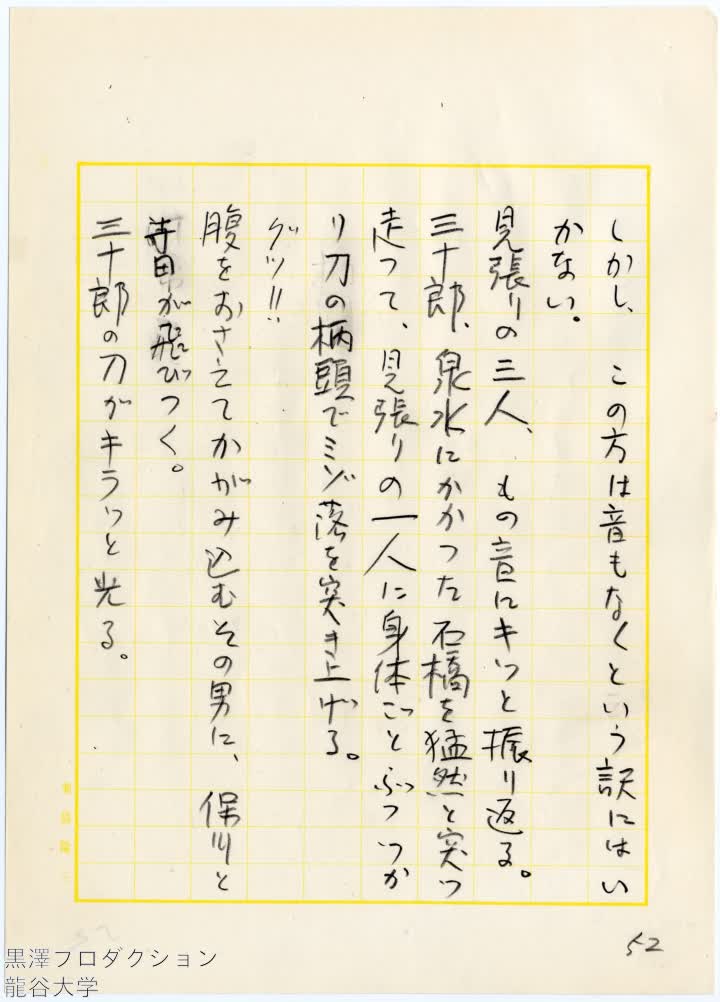 しかし、この方は音もなくという訳にはい
かない。
見張りの三人、もの音にキッと振り返る。
三十郎、泉水にかかった石橋を猛然と突っ
走って、見張りの一人に身体ごとぶっつか
り刀の柄頭でミゾ落を突き上げる。
グッ!!
腹をおさえてかがみ込むその男に、保川と
寺田が飛びつく。
三十郎の刀がキラッと光る。
52
黒澤プロダクション
龍谷大学